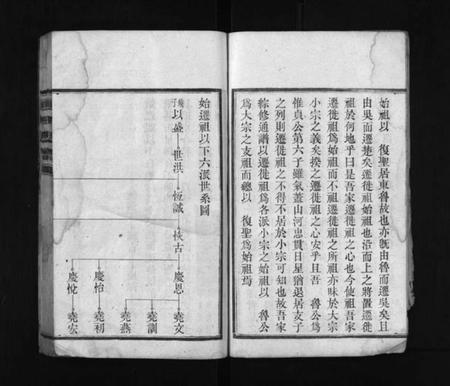 始祖以　復聖居東魯故也亦旣由魯而遷吳矣且
由吳而遷楚矣遷徙祖始祖也沿而上之將置遷徙
祖於何地乎曰是吾家遷徙祖之心也今使吾家
遷徙祖爲始祖而不祖遷徙祖之所祖亦昧於大宗
小宗之義矣揆之遷徙祖之心安乎且吾　魯公爲
惟貞公第六子雖氣蓋山河忠貫日星猶退居支子
之列則遷徙祖之不得不居於小宗可知也故吾家
綜修通譜以遷徙祖爲各派小宗之始祖以　魯公
爲大宗之支祖而總以　復聖爲始祖焉
始遷祖以下六派世系圖
以盛
世洪
恆誠
技古
慶恩
慶怡
慶悅
堯文
堯訓
堯燕
堯初
堯宏